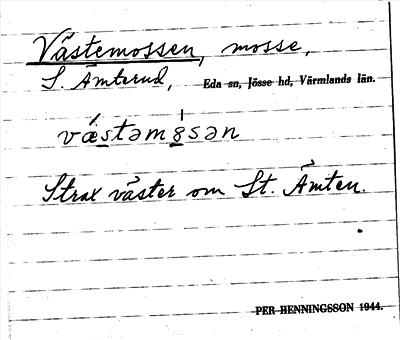 Västemossen, mosse,
S. Ämterud, Eda sn, Jösse hd, Värmlands län.
væstəm8sən
Strax väster om St. Ämten.
PER HENNINGSSON 1944.